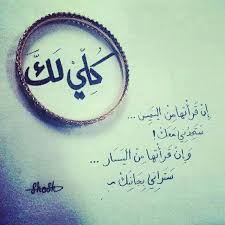 كُلّي لَكَّ
إن قرأتها من اليمين ...
ستجدني معك!
وإن قرأتها من اليسار ...
ستراني بجانبك ~
Shosh